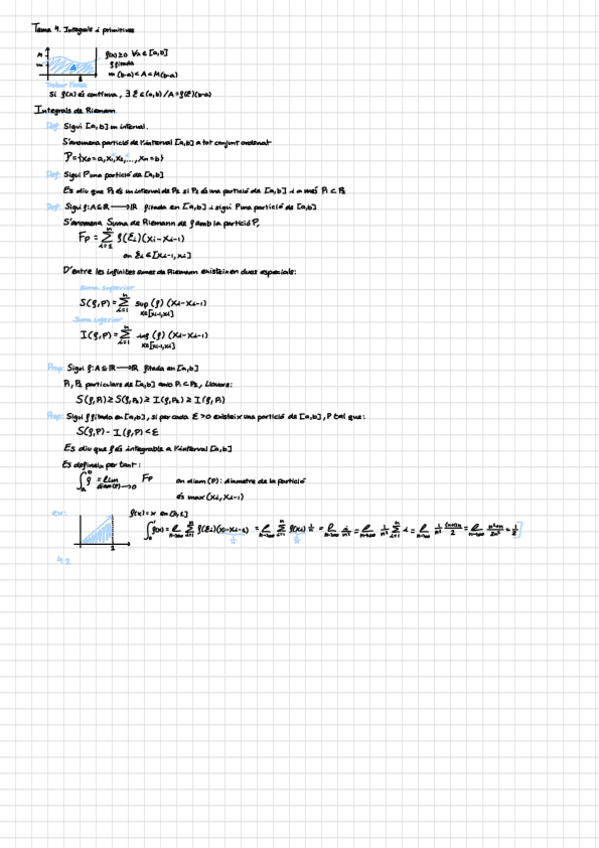 Tema 4. Integrals i primitives
M
m
A
f(x)≥0 ∀x∈[a,b]
f fitada
m(b-a)≤A≤M(b-a)
Si f(x) és contínua, ∃ξ∈(a,b)/A=f(ξ)(b-a)
Integrals de Riemann
Def: Sigui [a,b] un interval.
S'anomena partició de l'interval [a,b] a tot conjunt ordenat
P={x₀=a,x₁,x₂,...,xₙ=b}
Def: Sigui P una partició de [a,b]
Es diu que P₁ és un interval de P₂ si P₂ és una partició de [a,b] i a més P₁⊂P₂
Def: Sigui f:A⊆ℝ→ℝ fitada en [a,b] i sigui P una partició de [a,b]
S'anomena Suma de Riemann de f amb la partició P,
Fp = ∑ᵢ₌₁ⁿ f(ξᵢ)(xᵢ-xᵢ₋₁)
on ξᵢ∈[xᵢ₋₁,xᵢ]
D'entre les infinites sumes de Riemann existeixen dues especials:
Suma superior
S(f,P)=∑ᵢ₌₁ⁿ sup (f) (xᵢ-xᵢ₋₁)
x∈[xᵢ₋₁,xᵢ]
Suma inferior
I(f,P)=∑ᵢ₌₁ⁿ inf (f) (xᵢ-xᵢ₋₁)
x∈[xᵢ₋₁,xᵢ]
Prop: Sigui f:A⊆ℝ→ℝ fitada en [a,b]
P₁,P₂ particulars de [a,b] amb P₁⊂P₂, llavors:
S(f,P₁)≥S(f,P₂)≥I(f,P₂)≥I(f,P₁)
Prop: Sigui f fitada en [a,b], si per cada ε>0 existeix una partició de [a,b], P tal que:
S(f,P)-I(f,P)<ε
Es diu que f és integrable a l'interval [a,b]
Es defineix per tant:
∫ₐᵇ f = lim Fp on diam(P): diametre de la partició
diam(P)→0
és max(xᵢ,xᵢ₋₁)
ex: f(x)=x en [0,1]
1
4.2